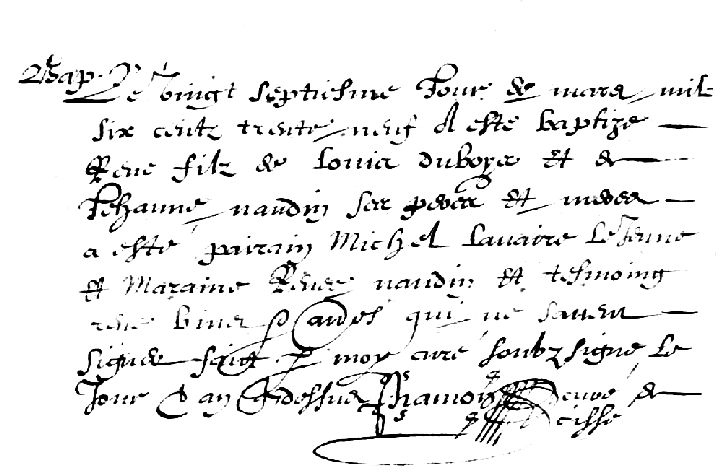 Bap. Le vingt septiesme Jour de mars mile
six centz trente neuf A este baptize
Rene filz de Louis duboys et de
Jehanne naudin ses peres et meres
a esté pairain Michel Lavaire le Jeune
et Maraine Renee naudin et tesmoing
rene qui ne savent
signer faict p moy curé soubz signé le
Jour & an q dessus Hamon curé de
cisse